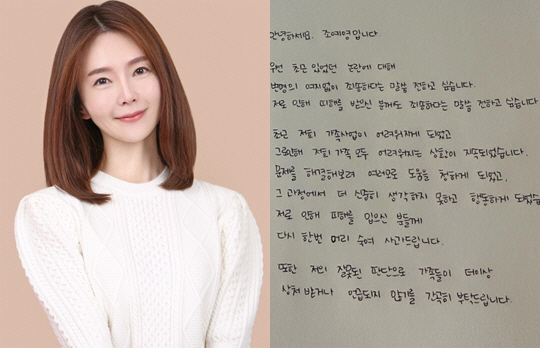 안녕하세요. 조예영입니다.
우선 최근 있었던 논란에 대해
변명의 여지없이 죄송하다는 말씀 전하고 싶습니다.
저로 인해 피해를 받으신 분께도 죄송하다는 말씀 전하고 싶습니다
최근 저희 가족사업이 어려워지게 되었고
그로인해 저희 가족 모두 어려워지는 상황이 지속되었습니다.
문제를 해결해보려 여러모로 도움을 청하게 되었고,
그 과정에서 더 신중히 생각하지 못하고 행동하게 되었습
저로 인해 피해를 입으신 분들께
다시 한번 머리 숙여 사과드립니다.
또한 저의 잘못된 판단으로 가족들이 더이상
상처 받거나 언급되지 않기를 간곡히 부탁드립니다.